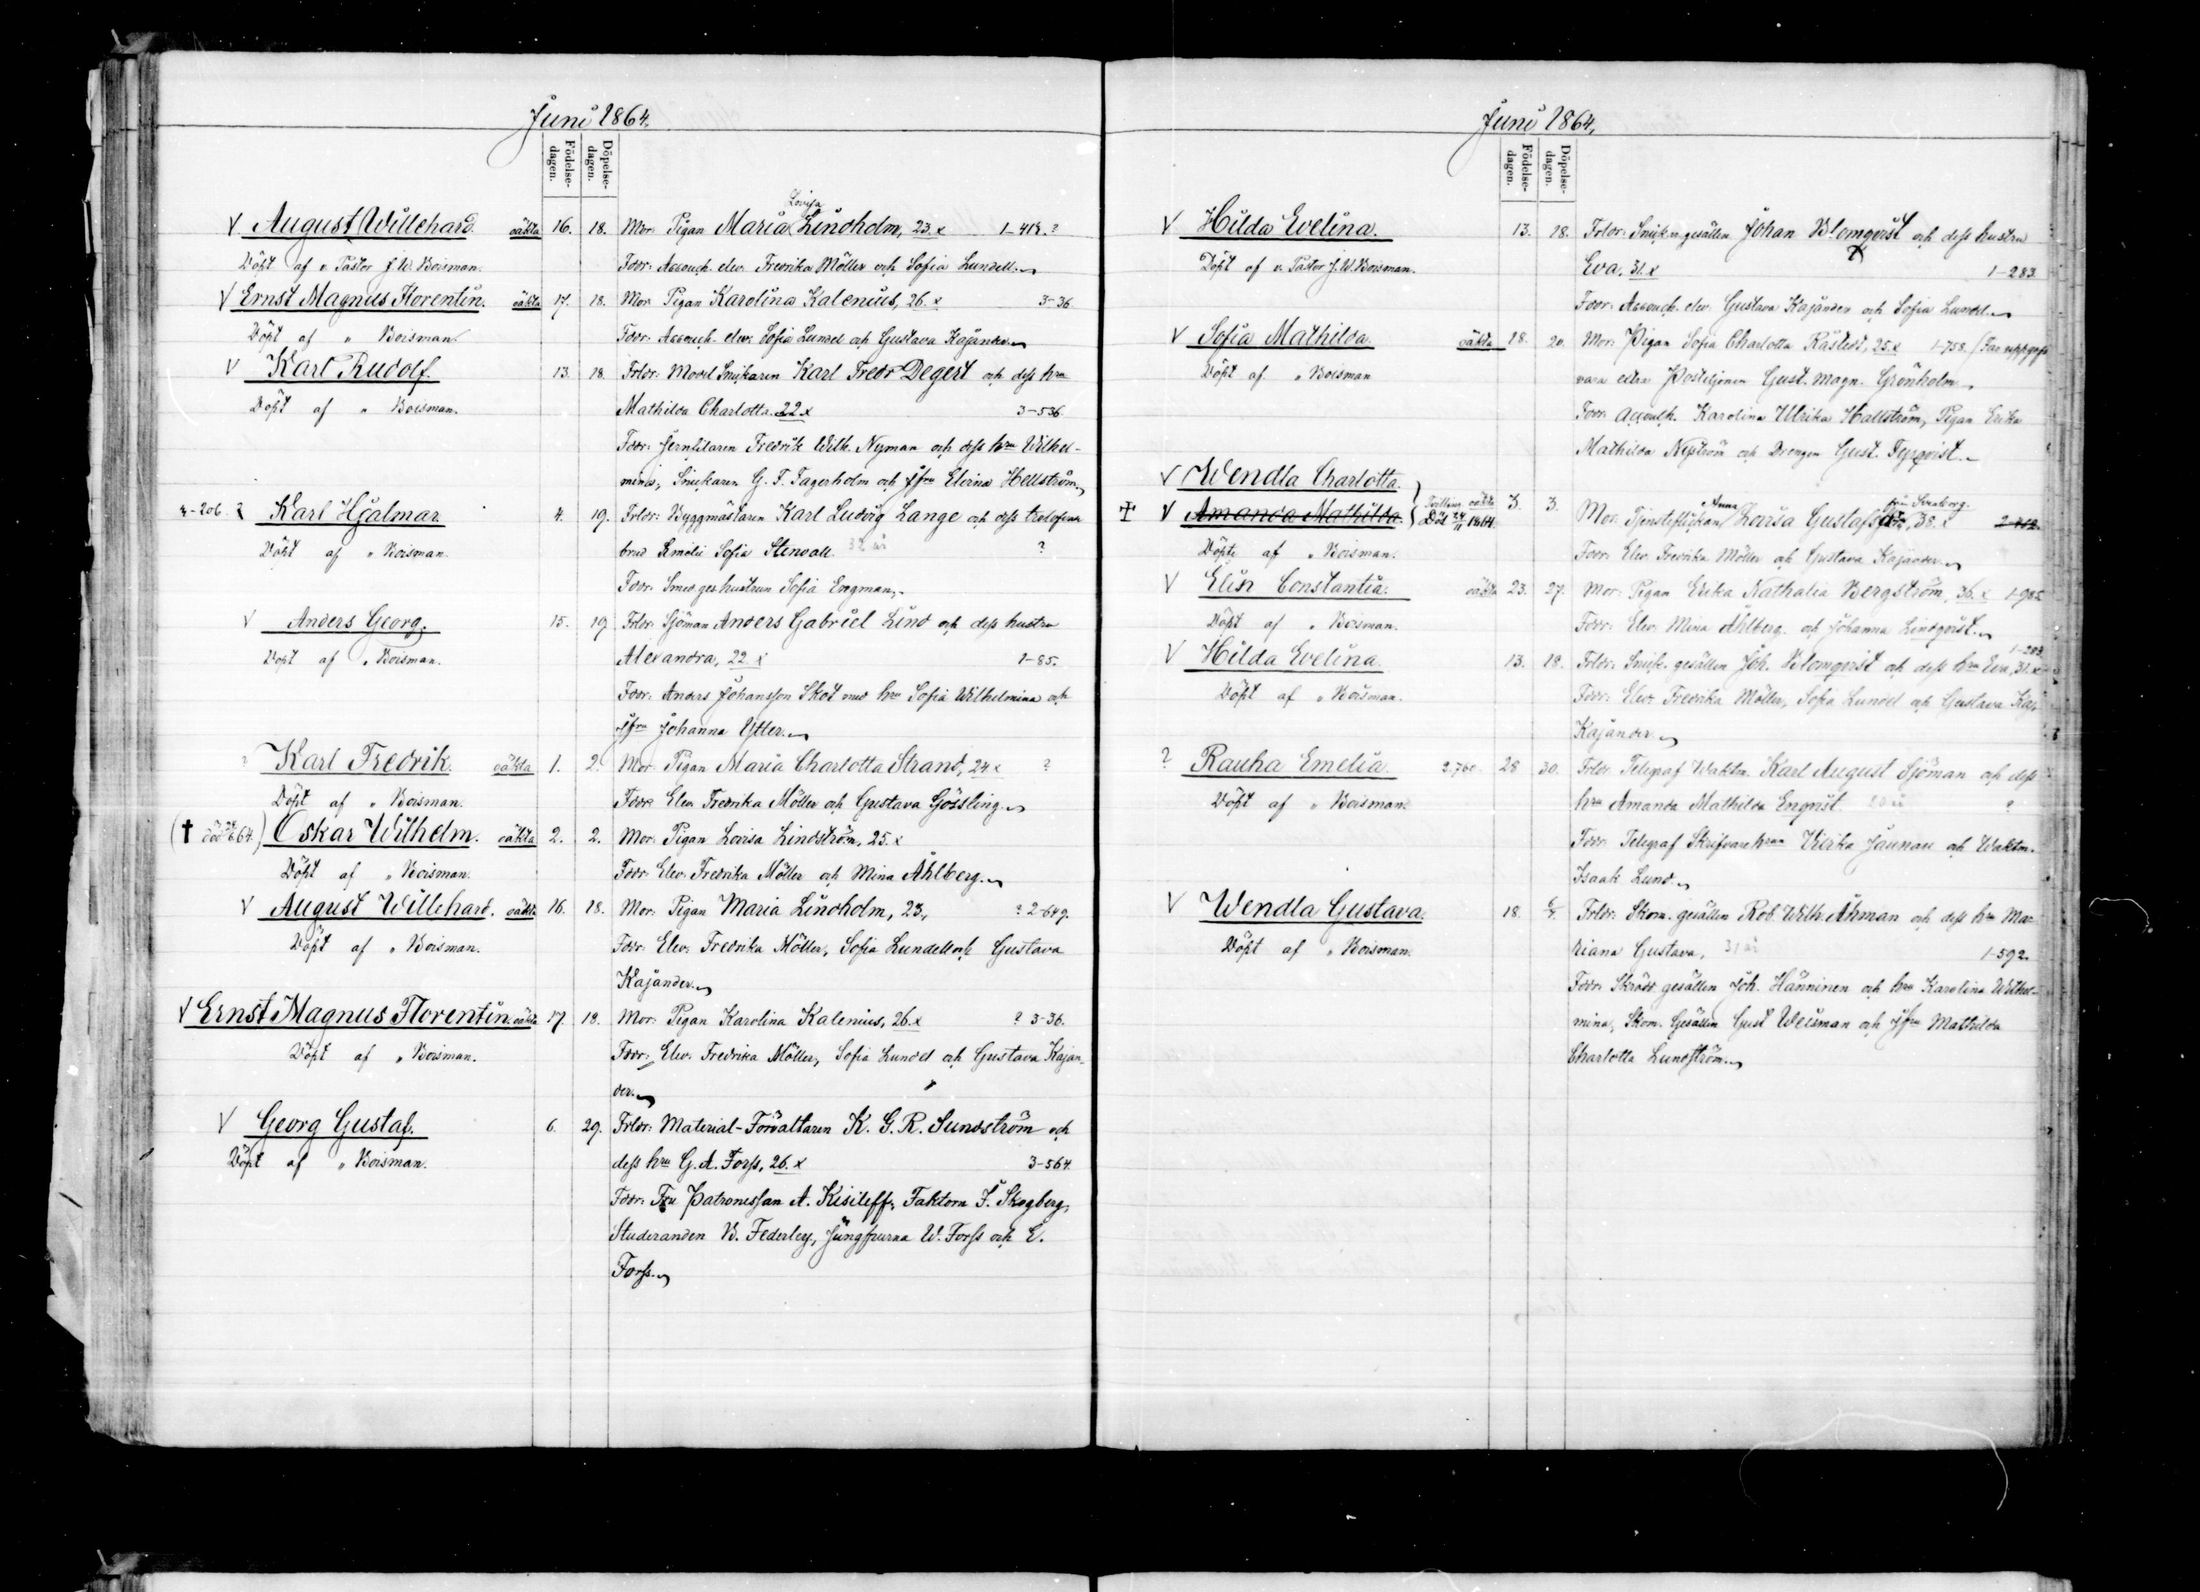 Juni 1864.
Födelse-dagen. Döpelse-dagen.
V August Willehard. oäkta 16. 18. Mor: Pigan Maria Lovisa Lindholm, 23. x 1-419. ?
Döpt af v. Pastor J. W. Boisman. Fadr: Accouch. elev. Fredrika Möller och Sofia Lundell.
V Ernst Magnus Florentin. oäkta 17. 18. Mor: Pigan Karolina Kalenius, 26. x 3-36
Döpt af " Boisman. Fadr: Accouch. elev. Sofia Lundel och Gustava Kajander.
V Karl Rudolf. 13. 18. Frldr: Model Snickaren Karl Fredr Degert och dess hru
Döpt af " Boisman. Mathilda Charlotta. 22 x 3-536
Fadr: Jernfilaren Fredrik Wilh. Nyman och dess hru Wilhel-
mina, Snickaren G. F. Fagerholm och jfru Elvina Hellström.
4-206. ? Karl Hjalmar. 4. 19. Frldr: Byggmästaren Karl Ludvig Lange och dess trolofvade
Döpt af " Boisman. brud Emelie Sofia Stenvall. 32 år ?
Fadr: Smed ges. hustrun Sofia Engman.
V Anders Georg. 15. 19 Frldr: Sjöman Anders Gabriel Lind och dess hustru
Döpt af " Boisman. Alexandra, 22 x 1-85.
Fadr: Anders Johansson Skot med hru Sofia Wilhelmina och
jfru Johanna Ytter.
? Karl Fredrik. oäkta 1. 2. Mor: Pigan Maria Charlotta Strand, 24 x ?
Döpt af " Boisman. Fadr: Elev. Fredrika Möller och Gustava Gössling.
(† död 64) Oskar Wilhelm. oäkta 2. 2. Mor: Pigan Lovisa Lindström, 25. x
Döpt af " Boisman. Fadr: Elev. Fredrika Möller och Mina Åhlberg.
V August Willehard. oäkta 16. 18. Mor: Pigan Maria Lindholm, 23., ? 2-649.
Döpt af " Boisman. Fadr: Elev. Fredrika Möller, Sofia Lundell och Gustava
Kajander.
V Ernst Magnus Florentin. oäkta 17. 18. Mor: Pigan Karolina Kalenius, 26. x ? 3-36.
Döpt af " Boisman. Fadr: Elev. Fredrika Möller, Sofia Lundel och Gustava Kajan-
der.
V Georg Gustaf. 6. 29. Frldr: Material-Förvaltaren K. G. R. Sundström och
Döpt af " Boisman. dess hru G. A. Forss, 26. x 3-564.
Fadr: Fru Patronessan A. Kisileff, Faktorn F. Skogberg,
Studeranden B. Federley, Jungfrurna W. Forss och E.
Forss.
Juni 1864.
Födelse-dagen. Döpelse-dagen.
V Hilda Evelina. 13. 18. Frldr: Snick. gesällen Johan Blomqvist och dess hustru
Döpt af v. Pastor J. W. Boisman. Eva, 31. x 1-283
Fadr: Accouch. elev. Gustava Kajanden och Sofia Lundel.
V Sofia Mathilda oäkta 18. 20. Mor: Pigan Sofia Charlotta Råstedt, 25. x 1-758. (Far uppgifs
Döpt af " Boisman vara extra Postiljonen Gust. Magn. Grönholm.
Fadr: Accouch. Karolina Ulrika Hallström, Pigan Erika
Mathilda Nyström och Drengen Gust. Fyrqvist.
V Wendla Charlotta.
V Amanda Mathilda. Tvillingar oäkta Död 24/11 1864. 3. 3. Mor: Tjensteflickan Anna Lovisa Gustafsdtr, från Sveaborg. 38. x
Döpte af " Boisman. Fadr: Elev. Fredrika Möller och Gustava Kajander.
V Elin Constantia. oäkta 23. 27. Mor: Pigan Erika Nathalia Bergström, 36. x 1-985
Döpt af " Boisman. Fadr: Elev. Mina Åhlberg och Johanna Lindqvist.
V Hilda Evelina. 13. 18. Frldr: Snick. gesällen Joh. Blomqvist och dess hru Eva, 31. x 1-283
Döpt af " Boisman. Fadr: Elev. Fredrika Möller, Sofia Lundel och Gustava Kaj.
Kajander.
? Rauha Emelia. 2.760. 28 30. Frldr: Telegraf Waktm. Karl August Sjöman och dess
Döpt af " Boisman. hru Amanda Mathilda Enqvist. 20 år ?
Fadr: Telegraf Skrifvare hrun Ulrika Jaunau och Waktm.
Isaak Lund.
V Wendla Gustava. 18. 6/7. Frldr: Skom. gesällen Rob. Wilh. Åhman och dess hru Ma-
Döpt af " Boisman. riana Gustava, 31 år 1-592.
Fadr: Skrädd. gesällen Joh. Hänninen och hru Karolina Wilhel-
mina, Skom. Gesällen Gust Weisman och jfru Mathilda
Charlotta Lundström.